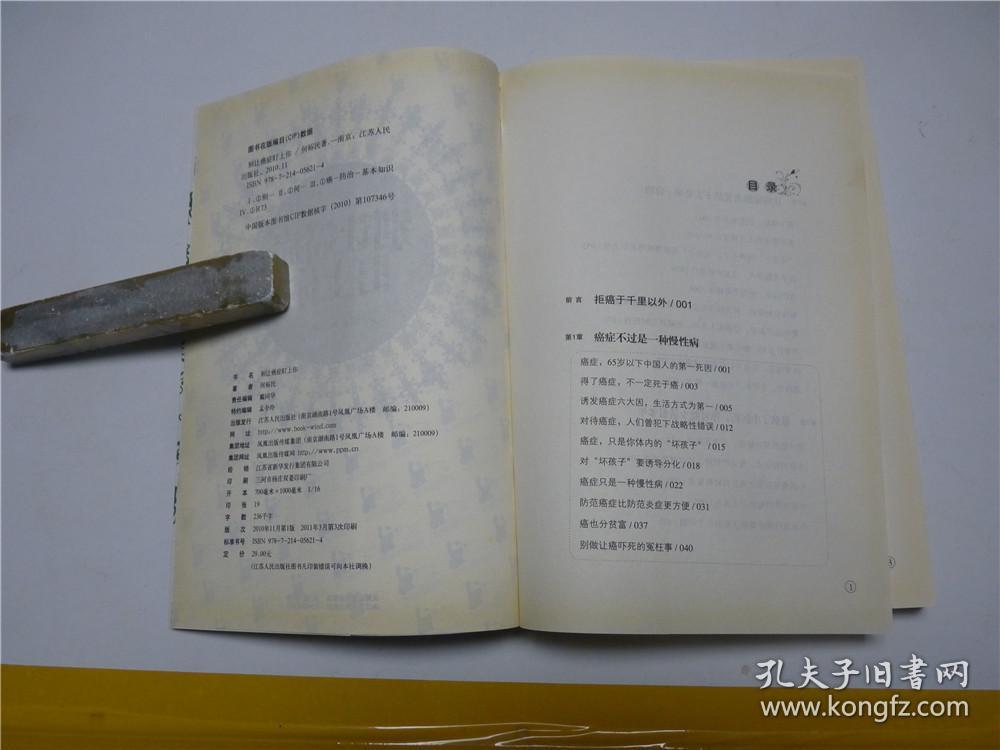 图书在版编目(CIP)数据
别让癌症盯上你 / 何裕民著.—南京：江苏人民
出版社，2010.11
ISBN 978-7-214-05621-4
Ⅰ.①别… Ⅱ.①何… Ⅲ.①癌－防治－基本知识
Ⅳ.①R73
中国版本图书馆CIP数据核字（2010）第107346号
书 名 别让癌症盯上你
著 者 何裕民
责任编辑 戴同华
特约编辑 孟令玲
出版发行 江苏人民出版社（南京湖南路1号凤凰广场A楼 邮编：210009）
网 址 http://www.book-wind.com
集团地址 凤凰出版传媒集团（南京湖南路1号凤凰广场A楼 邮编：210009）
集团网址 凤凰出版传媒网http://www.ppm.cn
经 销 江苏省新华发行集团有限公司
印 刷 三河市杨庄双菱印刷厂
开 本 700毫米×1000毫米 1/16
印 张 19
字 数 236千字
版 次 2010年11月第1版 2011年3月第3次印刷
标准书号 ISBN 978-7-214-05621-4
定 价 29.00元
（江苏人民出版社图书凡印装错误可向本社调换）
目 录
前 言 拒癌于千里以外 / 001
第1章 癌症不过是一种慢性病
癌症，65岁以下中国人的第一死因 / 001
得了癌症，不一定死于癌 / 003
诱发癌症六大因，生活方式为第一 / 005
对待癌症，人们曾犯下战略性错误 / 012
癌症，只是你体内的“坏孩子” / 015
对“坏孩子”要诱导分化 / 018
癌症只是一种慢性病 / 022
防范癌症比防范炎症更方便 / 031
癌也分贫富 / 037
别做让癌吓死的冤枉事 / 040
①
孔夫子旧书网
www.kongfz.com